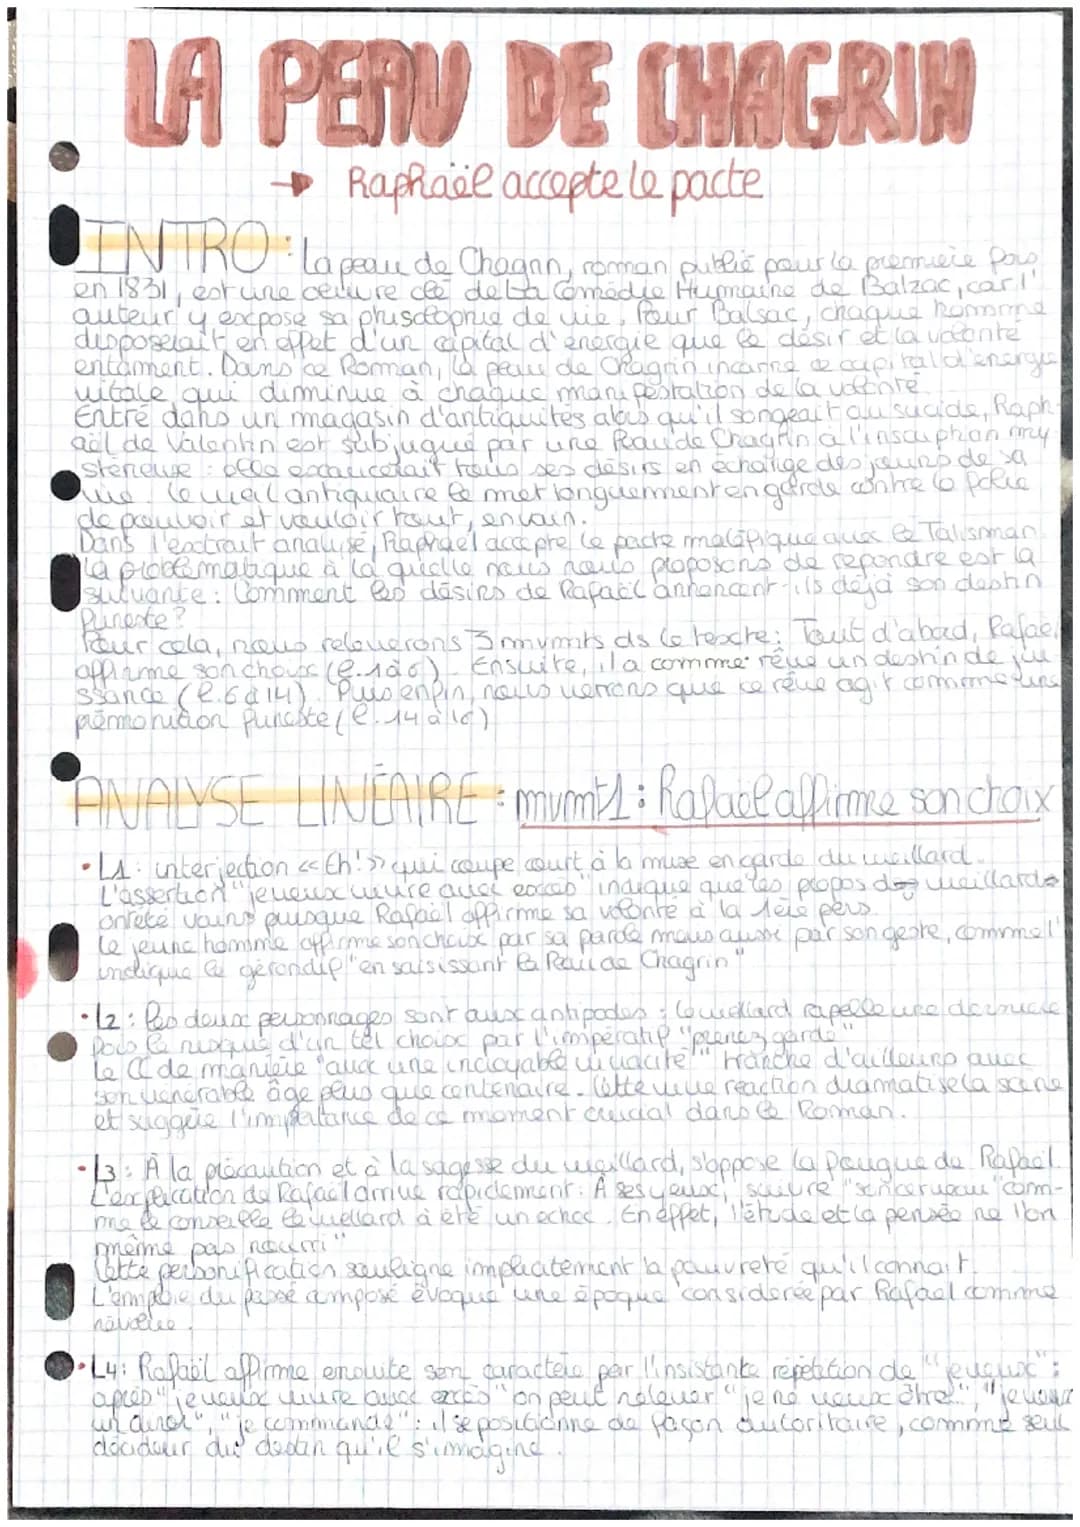 LA PEAU DE CHAGRIN
→ Raphaël accepte le pacte
INTRO : La peau de Chagrin, roman publié pour la première fois
en 1831, est une oeuvre clé de La Comédie Humaine de Balzac, car l'
auteur y expose sa philosophie de vie. Pour Balsac, chaque homme
disposerait en effet d'un capital d'énergie que le désir et la volonté
entament. Dans ce Roman, la peau de Chagrin incarne ce capital d'énergie
vitale, qui diminue à chaque manifestation de la volonté.
Entré dans un magasin d'antiquités alors qu'il songeait au suicide, Raph-
aël de Valentin est subjugué par une Peau de Chagrin à l'inscription my
stérieuse : elle exaucerait tous ses désirs en échange des jours de sa
vie. Le vieil antiquaire le met longuement en garde contre la folie
de pouvoir et vouloir tout, en vain.
Dans l'extrait analysé, Raphaël accepte le pacte maléfique avec le Talisman.
La problématique à laquelle nous nous proposons de répondre est la
suivante : Comment les désirs de Rafaël annoncent-ils déjà son destin
funeste ?
Pour cela, nous relèverons 3 mvmts ds le texte : Tout d'abord, Rafaël
affirme son choix (l.1 à 6). Ensuite, il a comme rêve un destin de jui
ssance (l.6 à 14). Puis enfin, nous verrons que ce rêve agit comme une
prémonition funeste (l.14 à 16)
ANALYSE LINÉAIRE : mvmt1 : Rafaël affirme son choix
• L1 : interjection «Eh!» qui coupe court à la mise en garde du vieillard.
L'assertion "je veux vivre avec excès" indique que les propos du vieillard
ont été vains puisque Rafaël affirme sa volonté à la 1ère pers.
Le jeune homme affirme son choix par sa parole mais aussi par son geste, comme l'
indique le gérondif "en saisissant la Peau de Chagrin"
• L2 : Les deux personnages sont aux antipodes : le vieillard rapelle une dernière
fois le risque d'un tel choix par l'impératif "prenez garde"
Le CC de manière "avec une incroyable vivacité" tranche d'ailleurs avec
son vénérable âge plus que centenaire. Cette vive réaction dramatise la scène
et suggère l'importance de ce moment crucial dans le Roman.
• L3 : À la précaution et à la sagesse du vieillard, s'oppose la fougue de Rafaël.
L'explication de Rafaël arrive rapidement : À ses yeux, suivre "son cerveau" com-
me le conseille le vieillard à été un échec. En effet, l'étude et la pensée ne l'on
même pas nourri"
Cette personification souligne implicitement la pauvreté qu'il connait.
L'emploie du passé composé évoque une époque considérée par Rafaël comme
révolue.
• L4 : Rafaël affirme ensuite son caractère par l'insistante répétition de "je veux" :
après "je veux vivre avec excès" on peut relever "je ne veux être", "je veux
un dîner", "je commande" : il se positionne de façon autoritaire, comme seul
décideur du destin qu'il s'imagine.